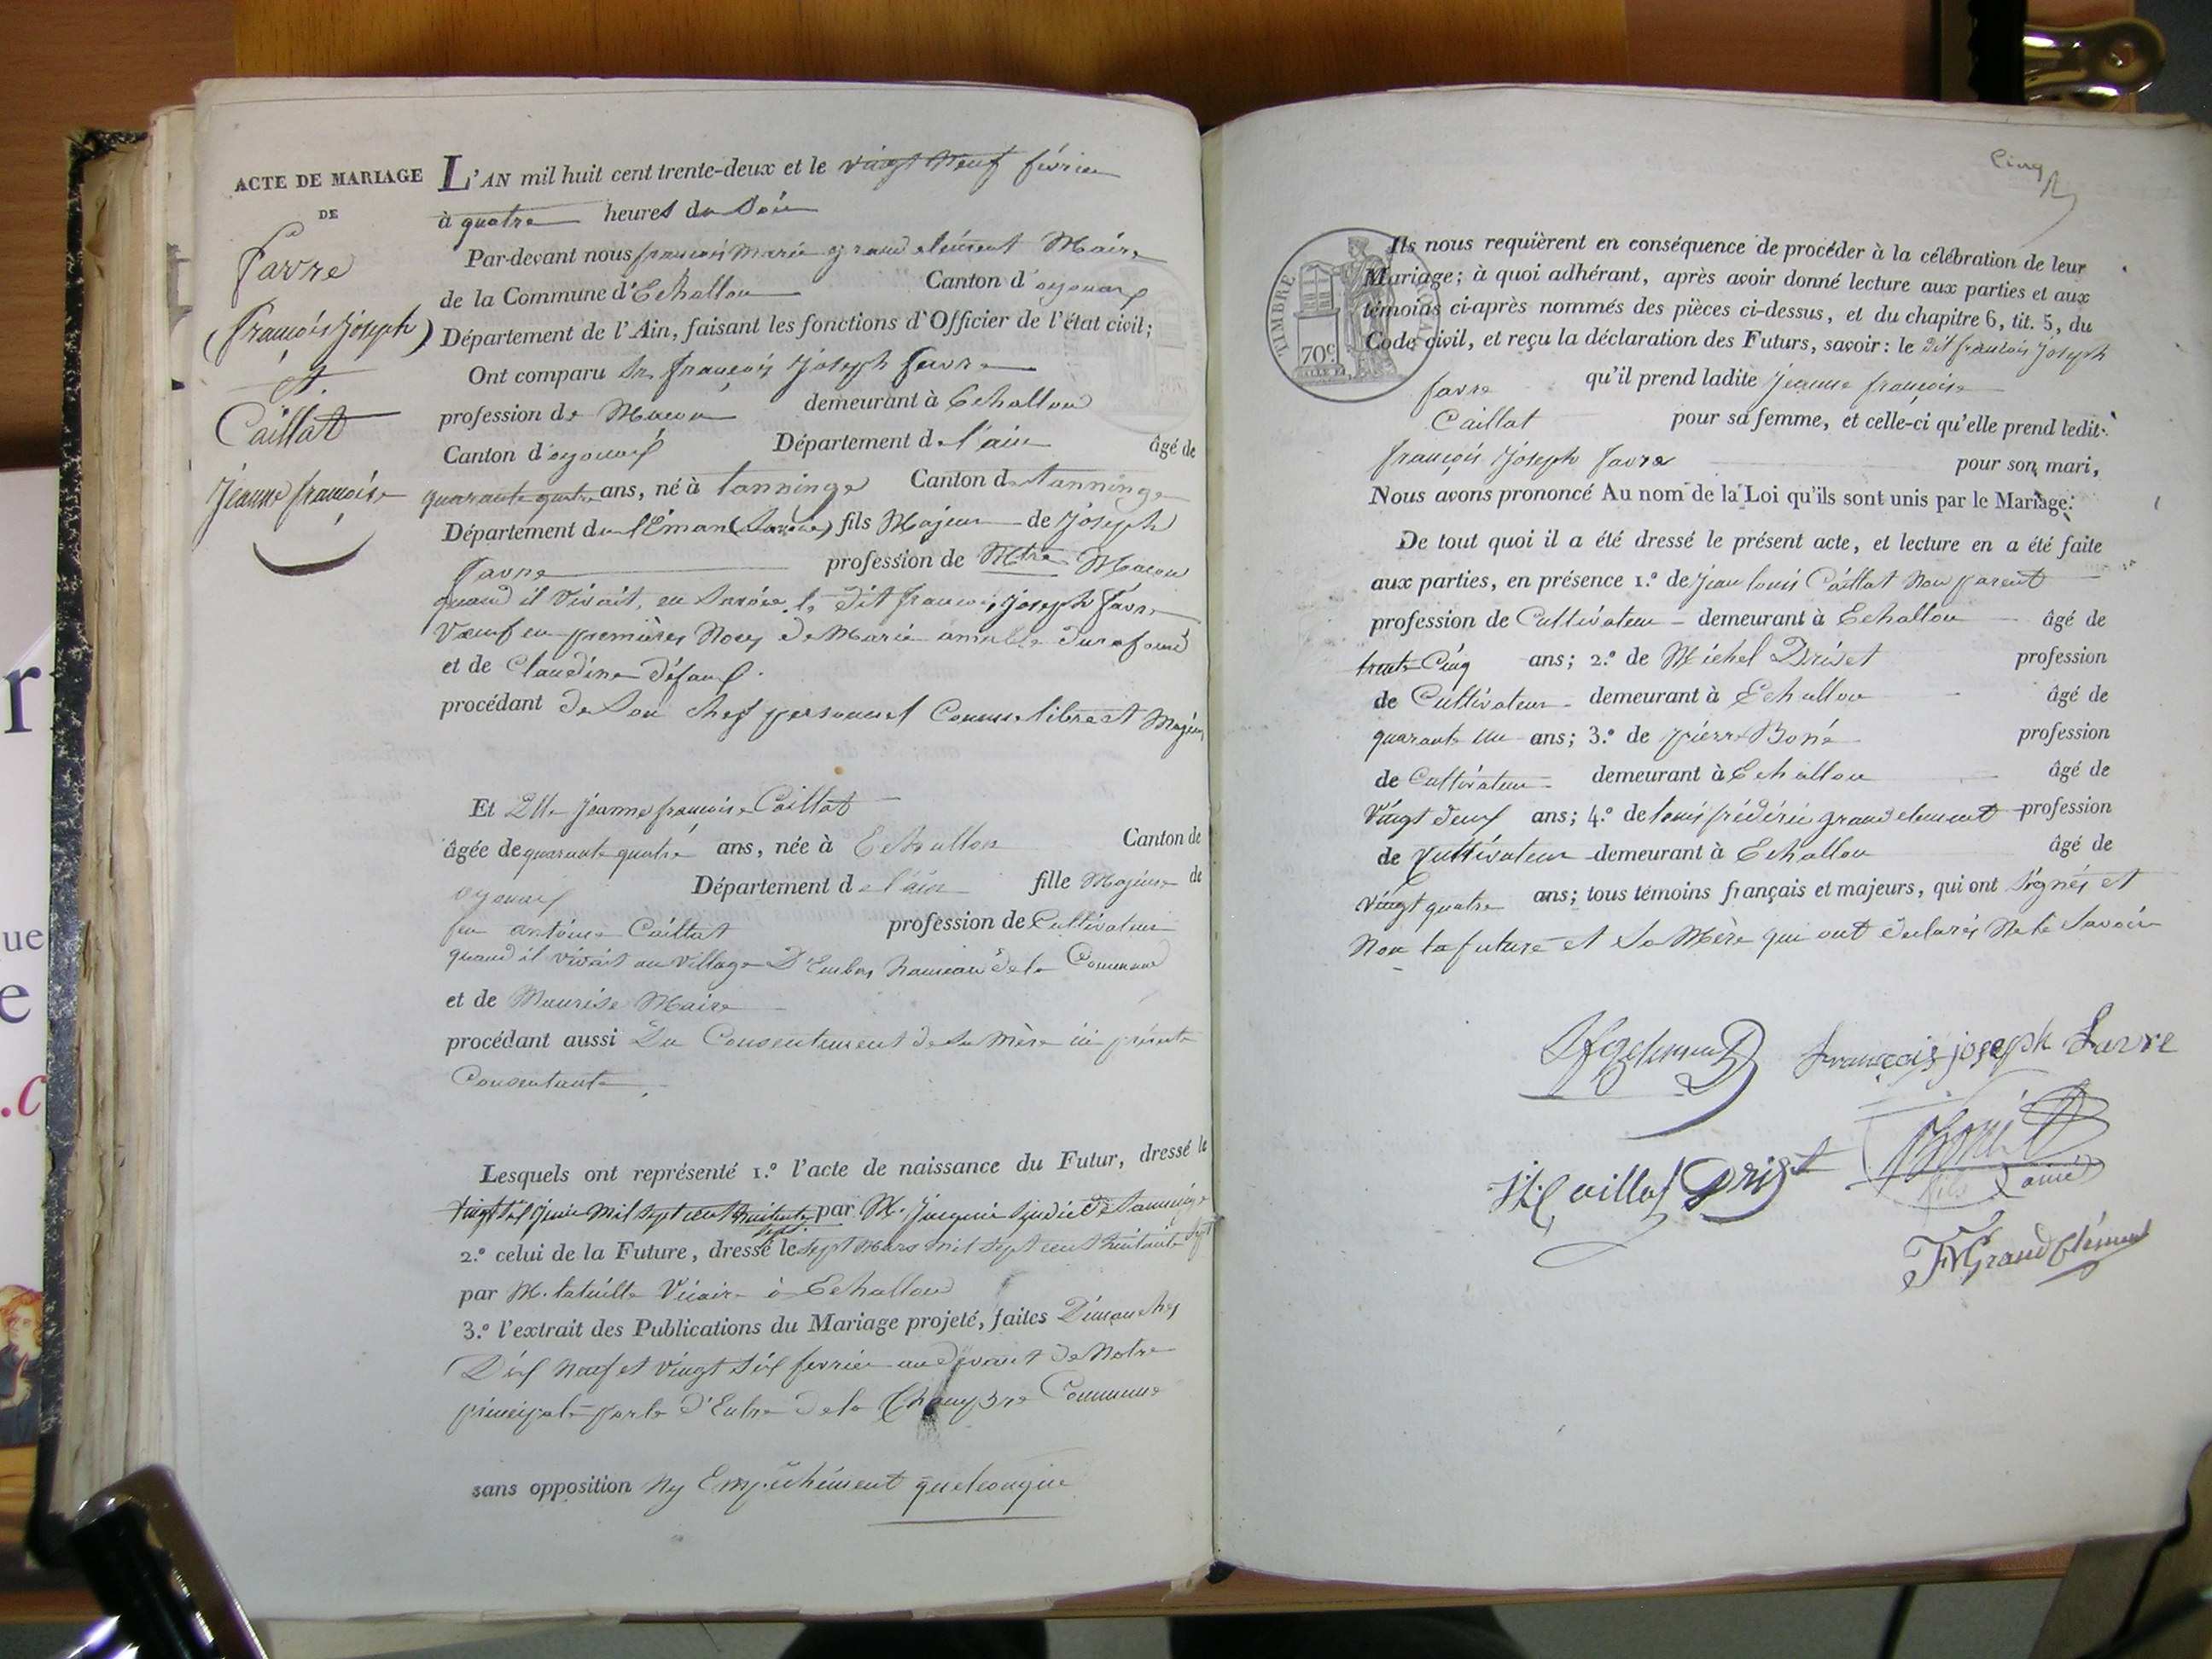 ACTE DE MARIAGE
DE
Favre
(françois Joseph)
et
Caillat
Jeanne françoise
L'AN mil huit cent trente-deux et le vingt neuf février
à quatre heures du Soir
Par-devant nous françois Marie grandclément Maire
de la Commune d'Echallon Canton d'oyonax
Département de l'Ain, faisant les fonctions d'Officier de l'état civil;
Ont comparu Sr. françois Joseph favre
profession de Macon demeurant à Echallon
Canton d'oyonax Département de l'ain âgé de
quarante quatre ans, né à tanninge Canton de tanninge
Département du léman (Savoie) fils Majeur de Joseph
favre profession de Mtre Macon
quand il vivait, en Savoie, le dit françois Joseph favre
Veuf en premières Noces de Marie
et de Claudine défaux.
procédant de Son chef personnel Comme libre et Majeur
Et Dlle Jeanne françoise Caillat
âgée de quarante quatre ans, née à Echallon Canton de
oyonax Département de l'ain fille Majeure de
feu antoine Caillat profession de Cultivateur
quand il vivait au village D'Emboz hameau de la Commune
et de Maurise Maire
procédant aussi Du Consentement de sa Mère ici présente
Consentante.
Lesquels ont représenté 1.º l'acte de naissance du Futur, dressé le
Vingt Six Juin Mil Sept cent huitante sept par M. Syndic de tanninge
2.º celui de la Future, dressé le sept Mars Mil Sept cent huitante sept
par M. Vicaire à Echallon
3.º l'extrait des Publications du Mariage projeté, faites Dimanches
Dix Neuf et Vingt Six fevrier au devant de Notre
principale porte d'Entre de la Chambre Commune
sans opposition Ny Empêchément quelconque
Cinq
TIMBRE ROYAL
70c
Ils nous requièrent en conséquence de procéder à la célébration de leur
Mariage; à quoi adhérant, après avoir donné lecture aux parties et aux
témoins ci-après nommés des pièces ci-dessus, et du chapitre 6, tit. 5, du
Code civil, et reçu la déclaration des Futurs, savoir: le dit françois Joseph
favre qu'il prend ladite Jeanne françoise
Caillat pour sa femme, et celle-ci qu'elle prend ledit
françois Joseph favre pour son mari,
Nous avons prononcé Au nom de la Loi qu'ils sont unis par le Mariage.
De tout quoi il a été dressé le présent acte, et lecture en a été faite
aux parties, en présence 1.º de Jean louis Caillat Non parent
profession de Cultivateur demeurant à Echallon âgé de
trente Cinq ans; 2.º de Michel Driset profession
de Cultivateur demeurant à Echallon âgé de
quarante un ans; 3.º de pierre Boné profession
de Cultivateur demeurant à Echallon âgé de
Vingt deux ans; 4.º de louis frédéric grandclement profession
de Cultivateur demeurant à Echallon âgé de
vingt quatre ans; tous témoins français et majeurs, qui ont Signés et
Non la future et Sa Mère qui ont déclarés Ne le Savoir
françois joseph favre
Caillat Driset
fils ainé
FMGrandClément